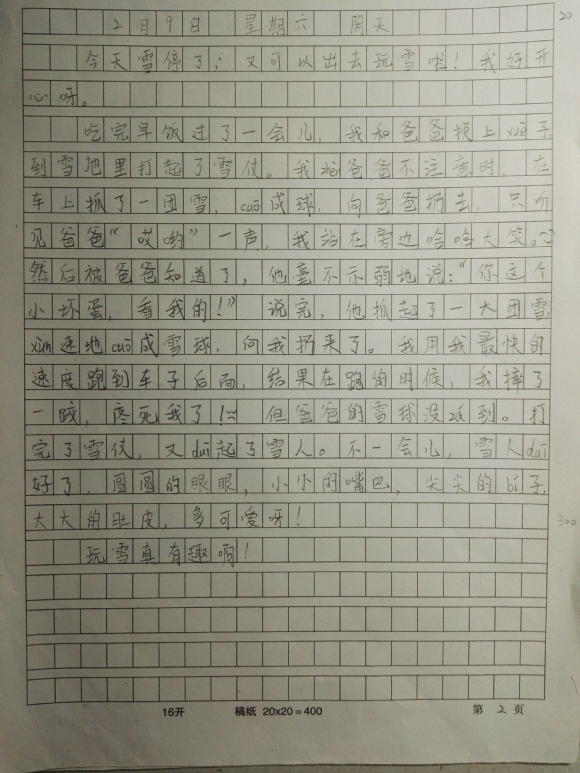 2月9日 星期六 阴天
20
今天雪停了；又可以出去玩雪啦！我好开
心呀。
吃完早饭过了一会儿，我和爸爸换上xuē子，
到雪地里打起了雪仗。我趁爸爸不注意时，在
车上抓了一团雪，cuō成球，向爸爸扔去，只听
见爸爸“哎哟”一声，我站在旁边哈哈大笑。
然后被爸爸知道了，他毫不示弱地说：“你这个
小坏蛋，看我的！”说完，他抓起了一大团雪，
xùn速地cuō成雪球，向我扔来了。我用我最快的
速度跑到车子后面，结果在跑的时候，我摔了
一跤，疼死我了！但爸爸的雪球没派到。打
完了雪仗，又duī起了雪人。不一会儿，雪人duī
好了，圆圆的眼眼，小小的嘴巴，尖尖的bí子，
大大的肚皮，多可爱呀！
300
玩雪真有趣啊！
16开 稿纸 20x20=400 第 2 页